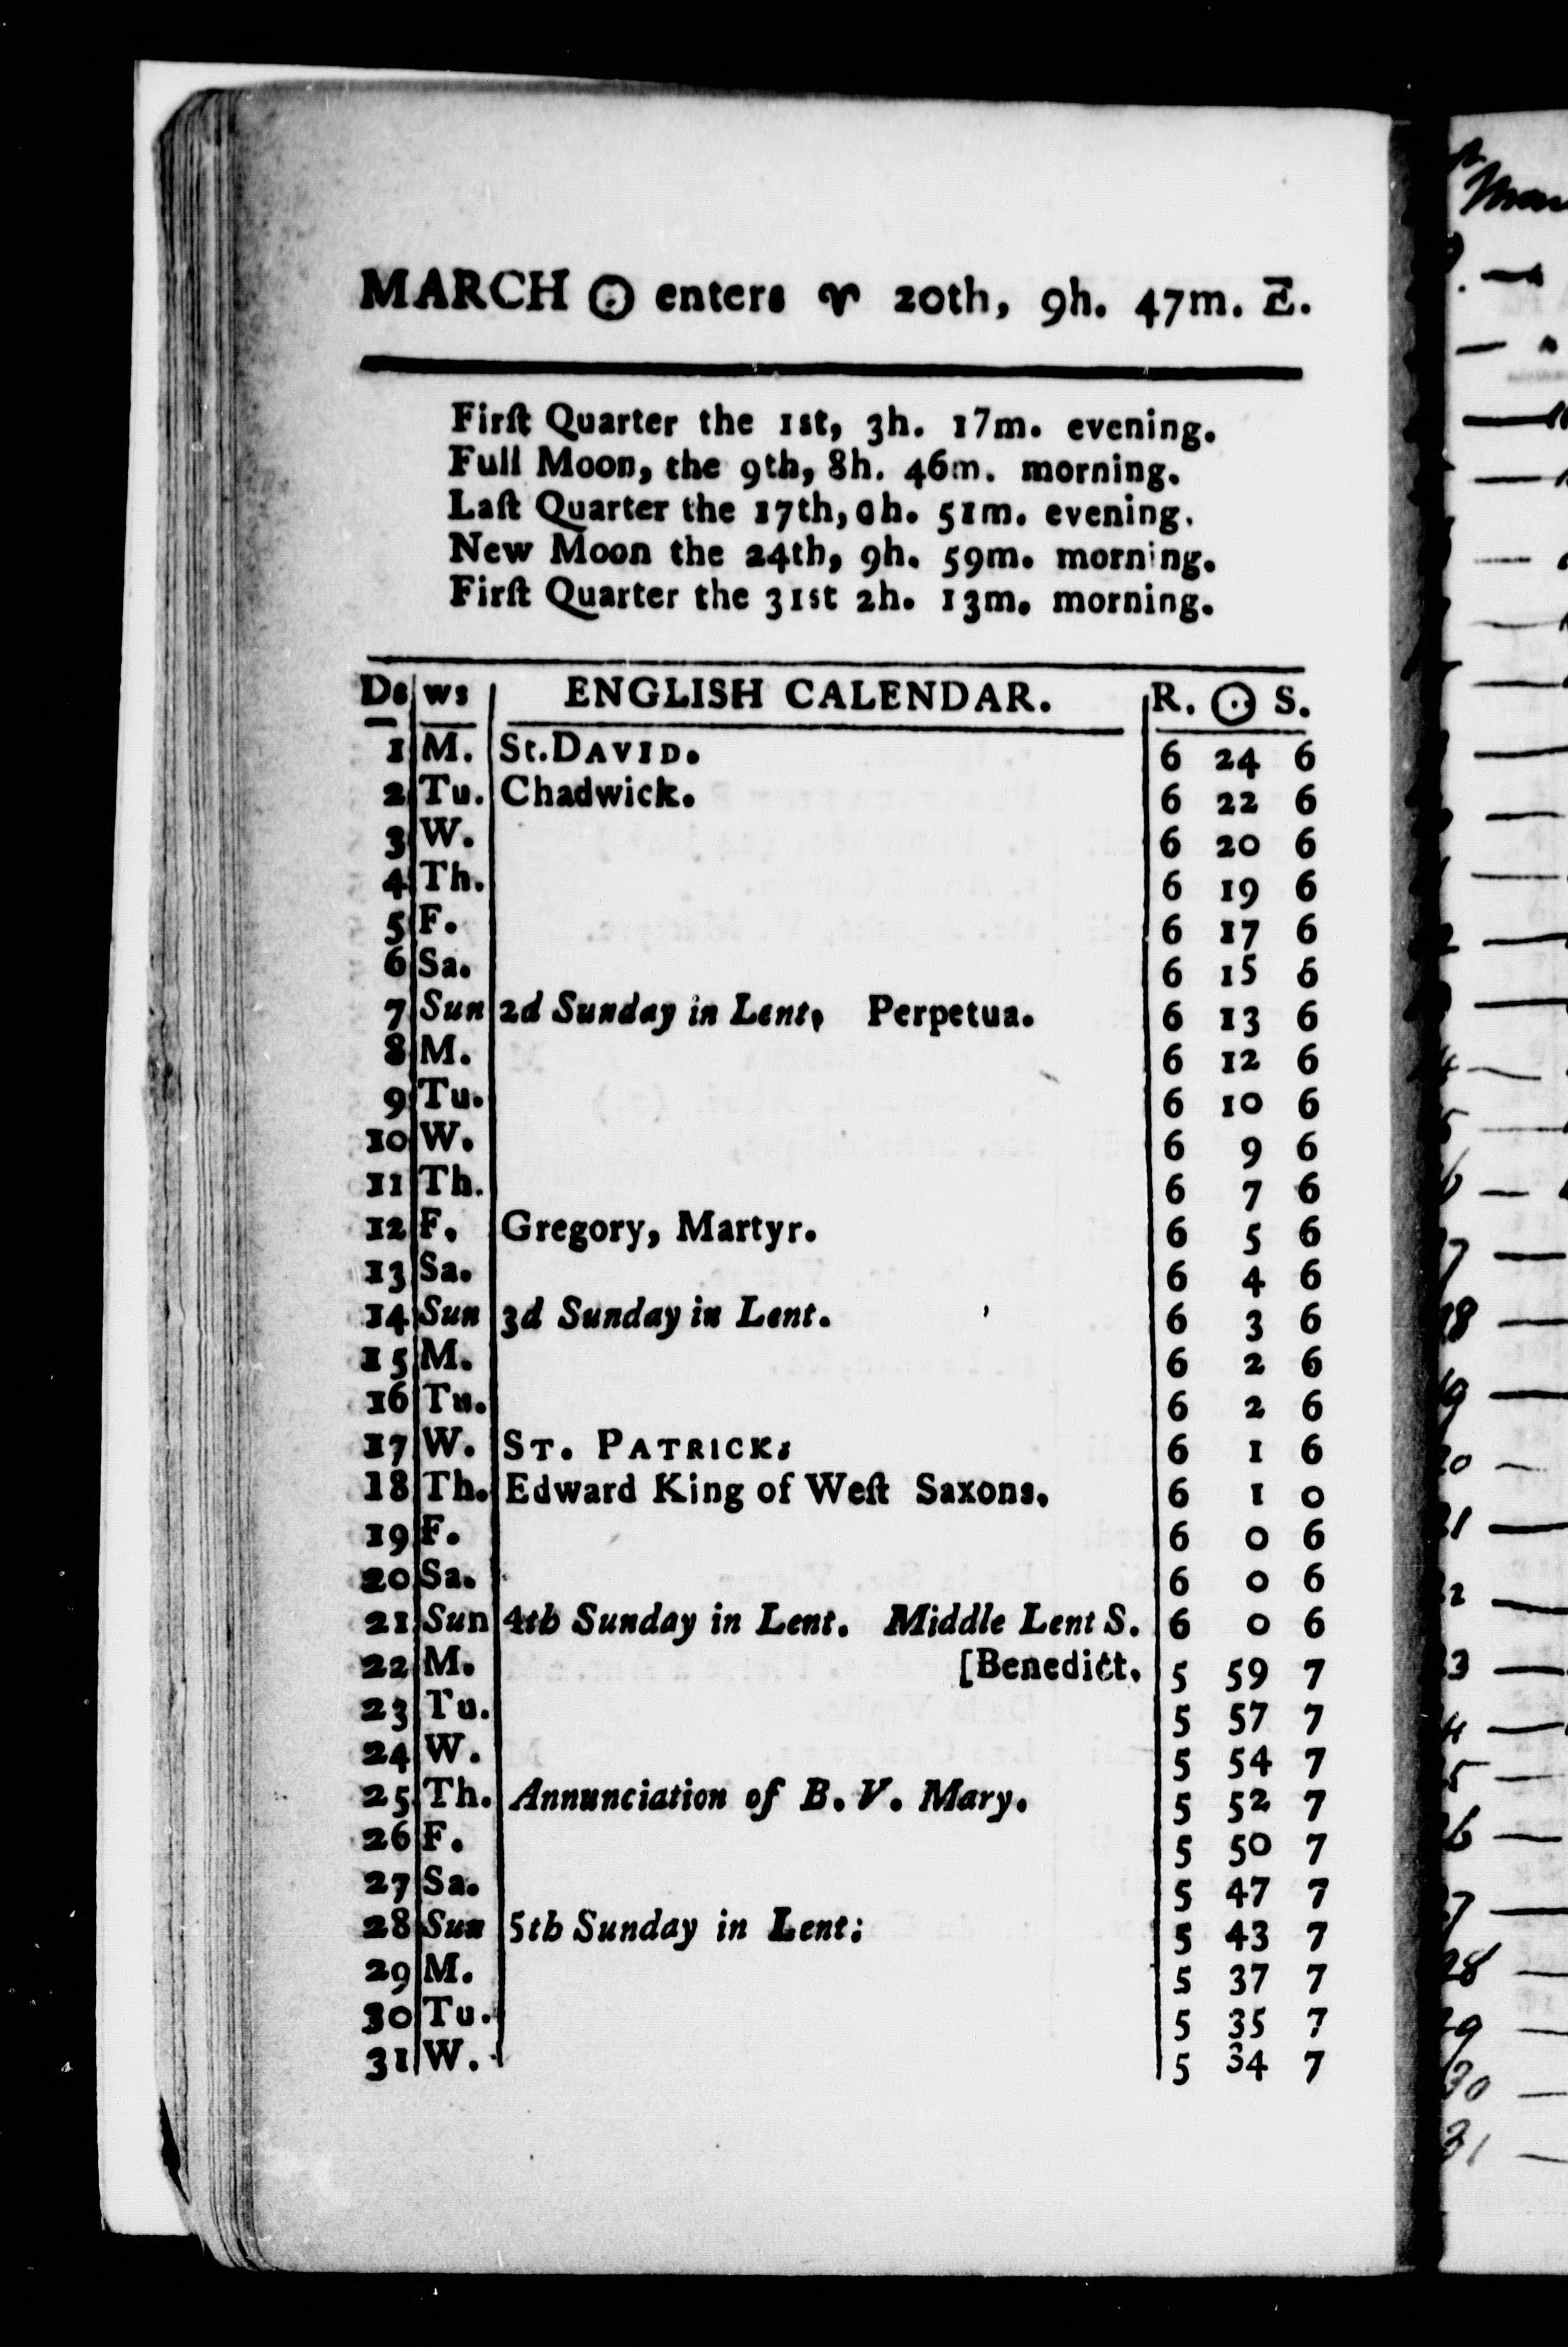 MARCH ☉ enters ♈ 20th, 9h. 47m. E.
Firſt Quarter the 1st, 3h. 17m. evening.
Full Moon, the 9th, 8h. 46m. morning.
Laſt Quarter the 17th, 0h. 51m. evening.
New Moon the 24th, 9h. 59m. morning.
Firſt Quarter the 31st 2h. 13m. morning.
Ds ws ENGLISH CALENDAR. R. ☉ S.
1 M. St. DAVID. 6 24 6
2 Tu. Chadwick. 6 22 6
3 W. 6 20 6
4 Th. 6 19 6
5 F. 6 17 6
6 Sa. 6 15 6
7 Sun 2d Sunday in Lent, Perpetua. 6 13 6
8 M. 6 12 6
9 Tu. 6 10 6
10 W. 6 9 6
11 Th. 6 7 6
12 F. Gregory, Martyr. 6 5 6
13 Sa. 6 4 6
14 Sun 3d Sunday in Lent. 6 3 6
15 M. 6 2 6
16 Tu. 6 2 6
17 W. ST. PATRICK: 6 1 6
18 Th. Edward King of Weſt Saxons. 6 1 0
19 F. 6 0 6
20 Sa. 6 0 6
21 Sun 4th Sunday in Lent. Middle Lent S. 6 0 6
22 M. [Benedict. 5 59 7
23 Tu. 5 57 7
24 W. 5 54 7
25 Th. Annunciation of B. V. Mary. 5 52 7
26 F. 5 50 7
27 Sa. 5 47 7
28 Sun 5th Sunday in Lent: 5 43 7
29 M. 5 37 7
30 Tu. 5 35 7
31 W. 5 34 7